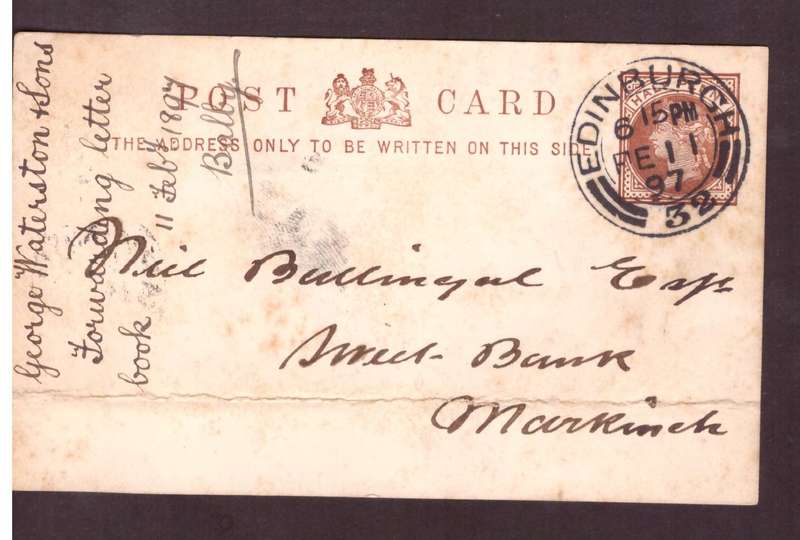 POST CARD
THE ADDRESS ONLY TO BE WRITTEN ON THIS SIDE
EDINBURGH
6 15PM
FE 11
97
32
HALF
Neil Ballingal Esqr
Sweet Bank
Markinch
George Waterston & Sons
Forwarding letter
book
11 Feby 1897